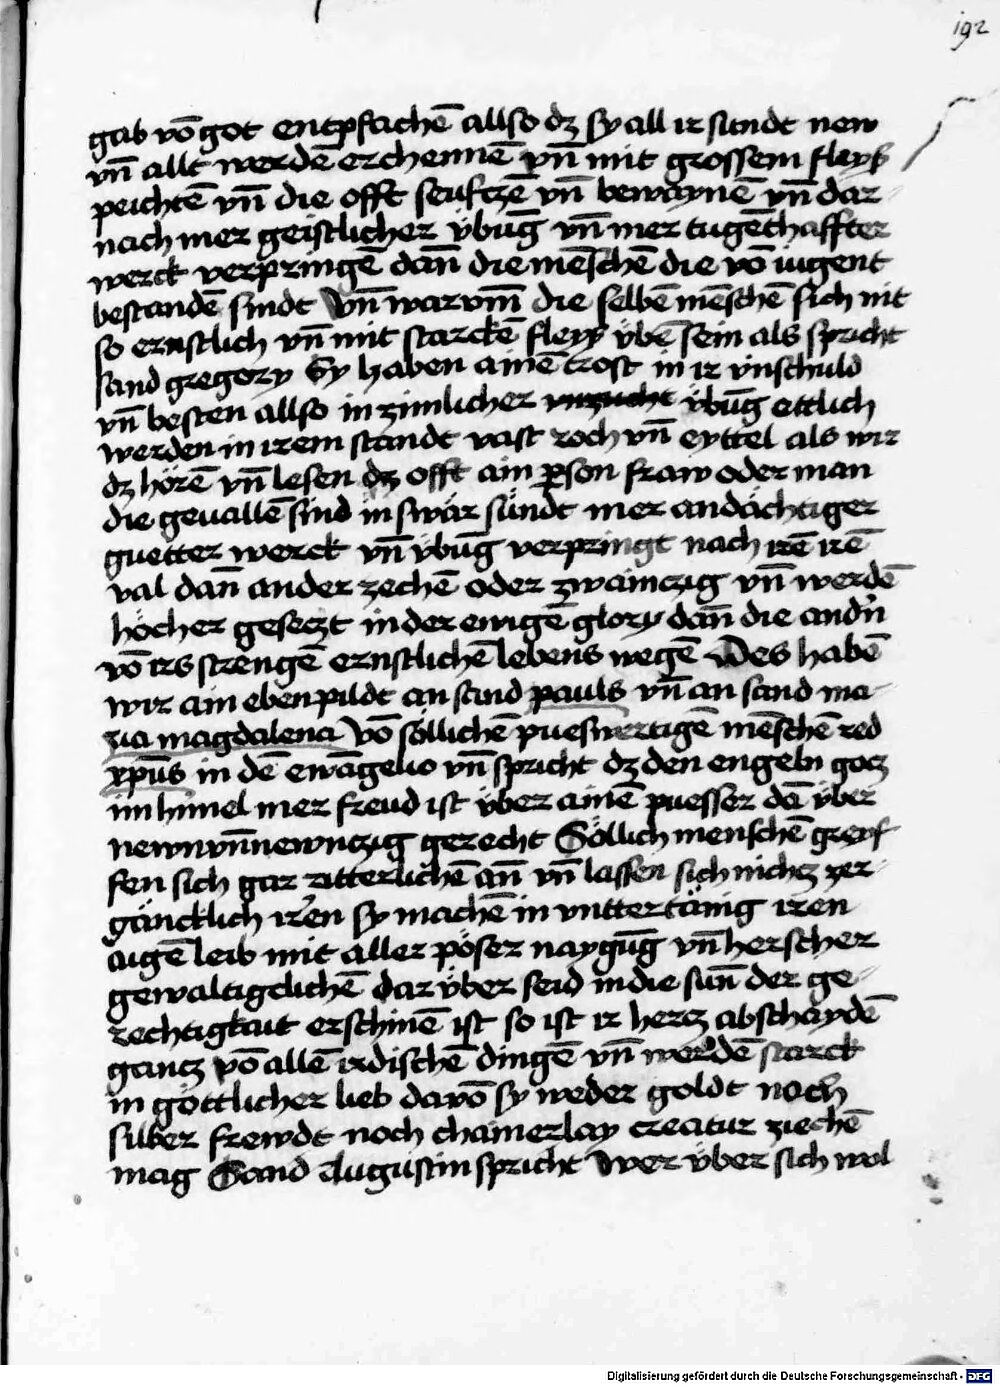 192
gab vō got entpfachē allso dz sy all ir sündt new
vn̄ allt werdē erchennē vn̄ mit grossem fleyß
peichtē vn̄ die offt seuftzē vn̄ bewaynē vn̄ dar
nach mer geistlicher ÿbūg vn̄ mer tugēthaffter
werck verpringē dan̄ die mēschē die vō iugent
bestandē sindt Vn̄ warvm̄ die selbē mēschē sich nit
so ernstlich vn̄ mit starckē fleyß ÿbē sein als spricht
sand gregory Sy haben ainē trost in ir vnschuld
vn̄ besten allso in zimlicher vnzucht ÿbūg ettlich
werden in irem standt vast roch vn̄ eyttel als wir
dz hörē vn̄ lesen dz offt ain ꝑson fraw oder man
die geuallē sind in swär sündt mer andächtiger
guetter werck vn̄ ÿbūg verpringt nach irē irē
val dan̄ ander zechē oder zwaintzig vn̄ werdē
höcher gesetzt in der ewigē glory dan̄ die andn̄
vō irs strengē ernstlichē lebens wegē Des habē
wir ain ebenpildt an sand pauls vn̄ an sand ma
ria magdalena Vō söllichē pueswertigē mēschē red
xp̄us in dē ewāgelio vn̄ spricht dz den engeln gotz
im himel mer freud ist ÿber ainē puesser dā ÿber
newnvn̄newntzig gerecht Söllich menschē greyf
fen sich gar ritterlichē an̄ vn̄ lassen sich nichtz zer
gäncklich irren sy machē in vnttertänig iren
aigē leib mit aller pöser naygūg vn̄ herscher
gewaltigclichē dar ÿber seid in die sun̄ der ge
rechtigkait erschinē ist so ist ir hertz abschaydē
gantz vō allē irdischē dingē vn̄ werdē starck
in göttlicher lieb davō sy weder goldt noch
silber frewdt noch chainerlay creatur ziechē
mag Sand Augustin spricht Wer ÿber sich wol
Digitalisierung gefördert durch die Deutsche Forschungsgemeinschaft - DFG